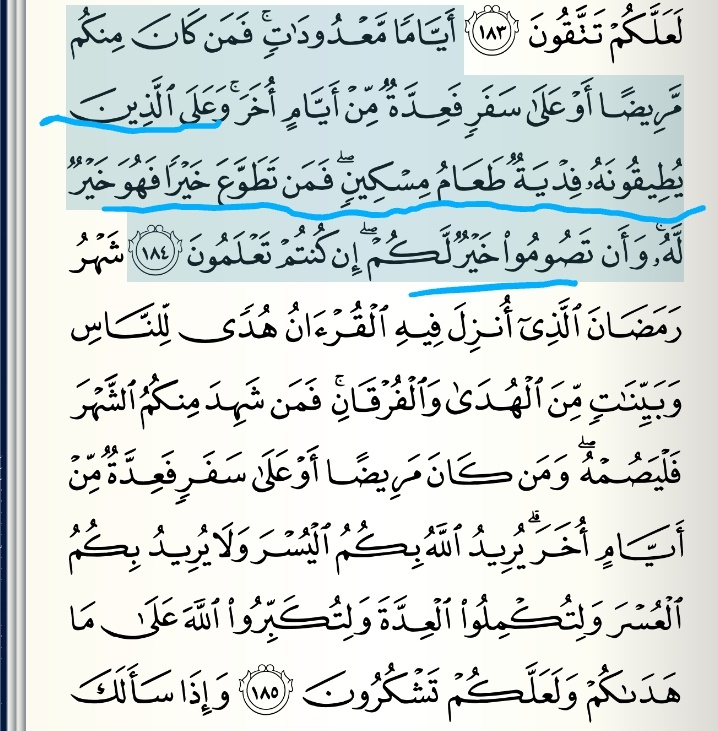 لَعَلَّكُمْ تَتَّقُونَ ١٨٣ أَيَّامًا مَّعْدُودَٰتٍۚ فَمَن كَانَ مِنكُم
مَّرِيضًا أَوْ عَلَىٰ سَفَرٍ فَعِدَّةٌ مِّنْ أَيَّامٍ أُخَرَۚ وَعَلَى ٱلَّذِينَ
يُطِيقُونَهُۥ فِدْيَةٌ طَعَامُ مِسْكِينٍۖ فَمَن تَطَوَّعَ خَيْرًا فَهُوَ خَيْرٌ
لَّهُۥۚ وَأَن تَصُومُوا۟ خَيْرٌ لَّكُمْۖ إِن كُنتُمْ تَعْلَمُونَ ١٨٤ شَهْرُ
رَمَضَانَ ٱلَّذِىٓ أُنزِلَ فِيهِ ٱلْقُرْءَانُ هُدًى لِّلنَّاسِ
وَبَيِّنَٰتٍ مِّنَ ٱلْهُدَىٰ وَٱلْفُرْقَانِۚ فَمَن شَهِدَ مِنكُمُ ٱلشَّهْرَ
فَلْيَصُمْهُۖ وَمَن كَانَ مَرِيضًا أَوْ عَلَىٰ سَفَرٍ فَعِدَّةٌ مِّنْ
أَيَّامٍ أُخَرَۗ يُرِيدُ ٱللَّهُ بِكُمُ ٱلْيُسْرَ وَلَا يُرِيدُ بِكُمُ
ٱلْعُسْرَ وَلِتُكْمِلُوا۟ ٱلْعِدَّةَ وَلِتُكَبِّرُوا۟ ٱللَّهَ عَلَىٰ مَا
هَدَىٰكُمْ وَلَعَلَّكُمْ تَشْكُرُونَ ١٨٥ وَإِذَا سَأَلَكَ